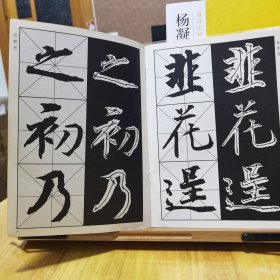 杨凝
之初乃
之初乃
韭花逞
韭花逞